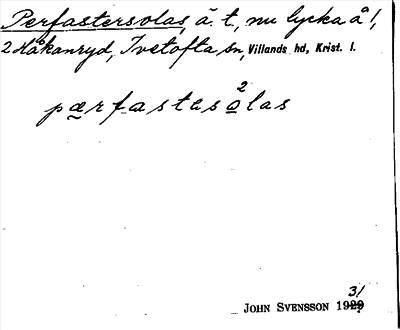 Perfastersolas, ä. t., nu lycka å 1,
2 Håkanryd, Ivetofta sn, Villands hd, Krist. l.
pærfastesolas
2
JOHN SVENSSON 1929
31